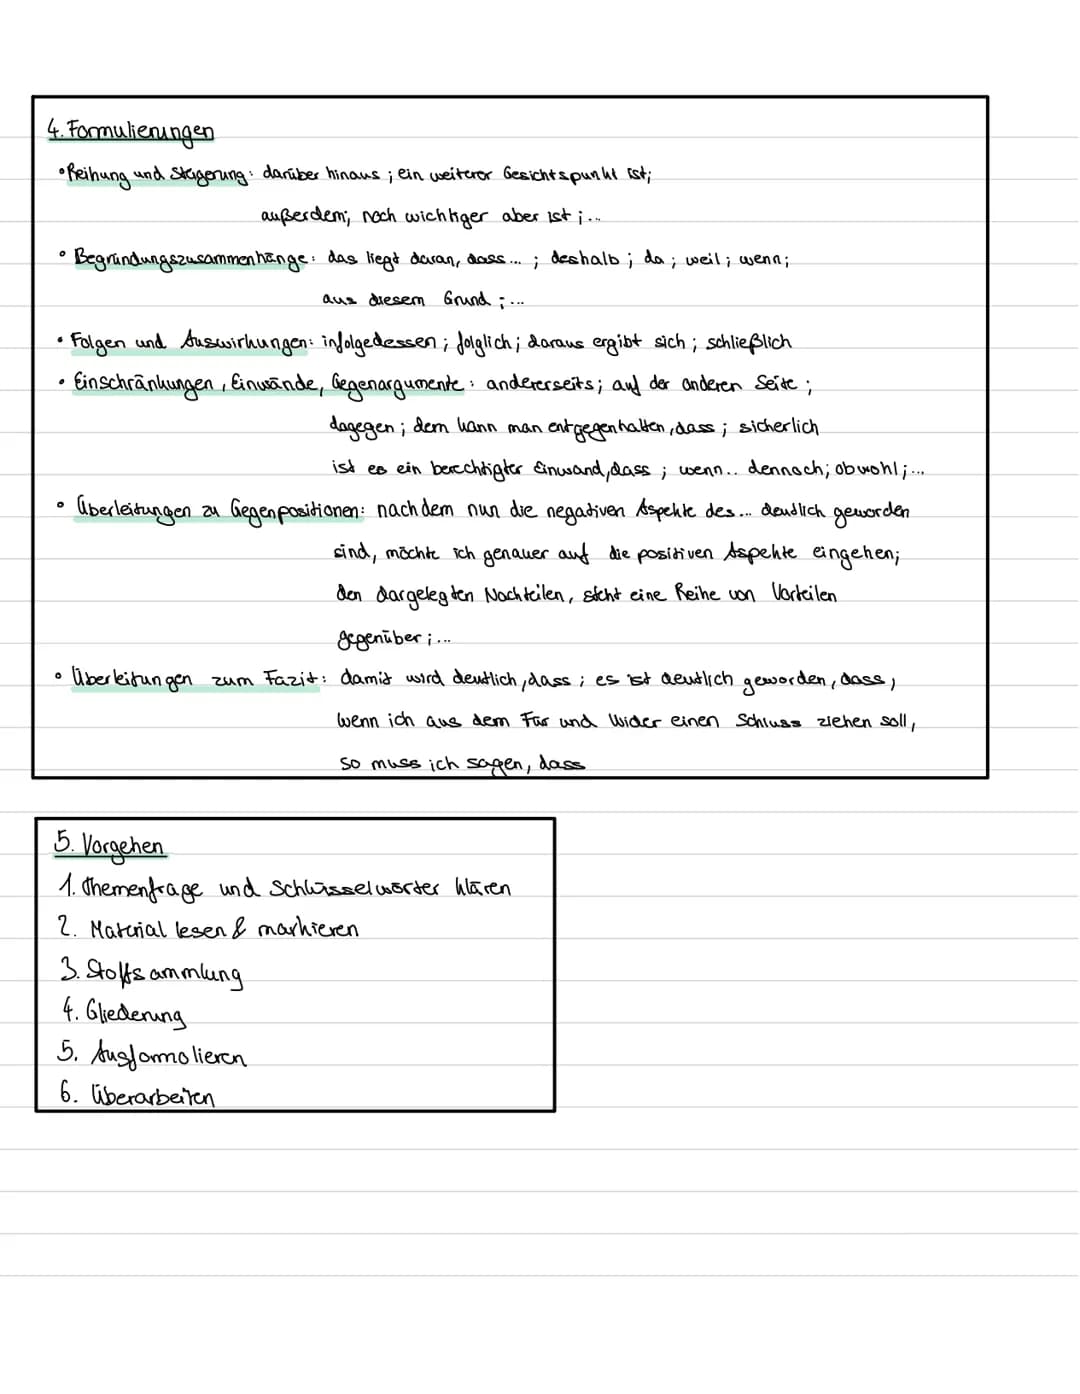 4. Formulierungen
• Reihung und Steigerung: darüber hinaus ; ein weiterer Gesichtspunkt ist;
außerdem; noch wichtiger aber ist ;...
• Begründungszusammenhänge: das liegt daran, dass... ; deshalb ; da ; weil ; wenn;
aus diesem Grund ;...
• Folgen und Auswirkungen: infolgedessen ; folglich ; daraus ergibt sich ; schließlich
• Einschränkungen, Einwände, Gegenargumente: andererseits; auf der anderen Seite ;
dagegen ; dem kann man entgegenhalten, dass ; sicherlich
ist es ein berechtigter Einwand, dass ; wenn.. dennoch; obwohl ;...
• Überleitungen zu Gegenpositionen: nachdem nun die negativen Aspekte des... deutlich geworden
sind, möchte ich genauer auf die positiven Aspekte eingehen;
den dargelegten Nachteilen, steht eine Reihe von Vorteilen
gegenüber ;...
• Überleitungen zum Fazit: damit wird deutlich, dass ; es ist deutlich geworden, dass,
wenn ich aus dem Für und Wider einen Schluss ziehen soll,
so muss ich sagen, dass
5. Vorgehen
1. Themenfrage und Schlüsselwörter klären
2. Material lesen & markieren
3. Stoffsammlung
4. Gliederung
5. Ausformolieren
6. Überarbeiten